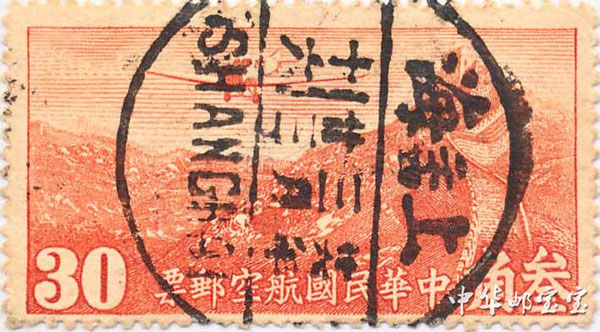 上海
SHANGHAI
30
叁角
中華民國航空郵票
中华邮宝宝